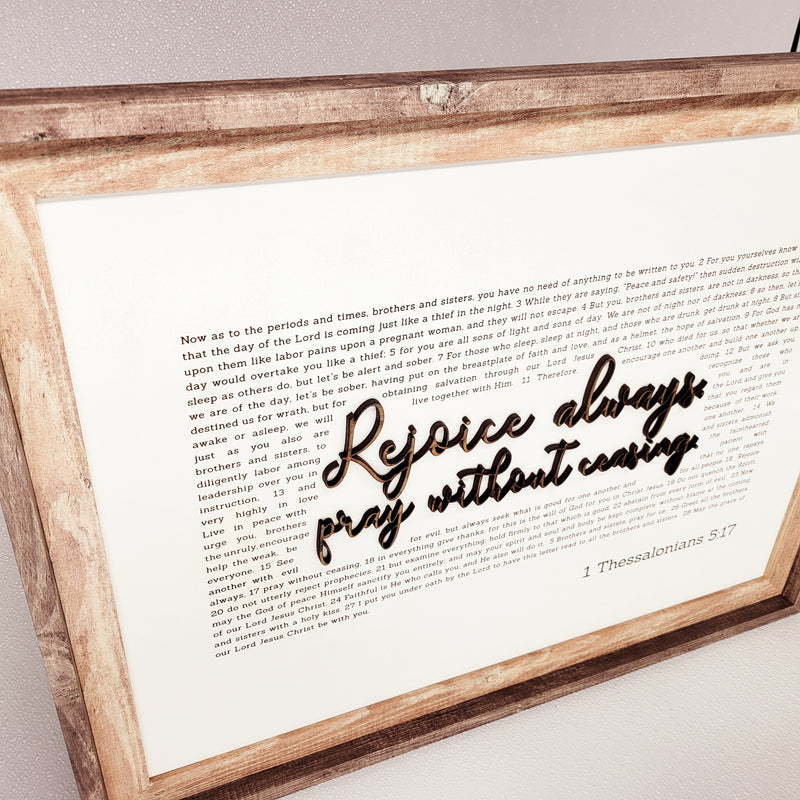 Now as to the periods and times, brothers and sisters, you have no need of anything to be written to you. 2 For you yourselves know
that the day of the Lord is coming just like a thief in the night. 3 While they are saying, “Peace and safety!” then sudden destruction
upon them like labor pains upon a pregnant woman, and they will not escape. 4 But you, brothers and sisters, are not in darkness, so
day would overtake you like a thief; 5 for you are all sons of light and sons of day. We are not of night nor of darkness; 6 so then, let's
sleep as others do, but let's be alert and sober. 7 For those who sleep, sleep at night, and those who are drunk, get drunk at night. 8 But
we are of the day, let's be sober, having put on the breastplate of faith and love, and as a helmet, the hope of salvation. 9 For God has
destined us for wrath, but for obtaining salvation through our Lord Jesus Christ, 10 who died for us, so that whether we are
awake or asleep, we will live together with Him. 11 Therefore, encourage one another and build one another up,
just as you also are doing. 12 But we ask you,
brothers and sisters, to recognize those who
diligently labor among you and are in
leadership over you in the Lord and give you
instruction, 13 and that you regard them
very highly in love because of their work.
Live in peace with one another. 14 We
urge you, brothers and sisters, admonish
the unruly, encourage the fainthearted,
help the weak, be patient with
everyone. 15 See that no one repays
another with evil for evil, but always seek what is good for one another and for all people. 16 Rejoice
always, 17 pray without ceasing, 18 in everything give thanks; for this is the will of God for you in Christ Jesus. 19 Do not quench the Spirit,
20 do not utterly reject prophecies, 21 but examine everything; hold firmly to that which is good, 22 abstain from every form of evil. 23 Now
may the God of peace Himself sanctify you entirely; and may your spirit and soul and body be kept complete, without blame at the coming
of our Lord Jesus Christ. 24 Faithful is He who calls you, and He also will do it. 5 Brothers and sisters, pray for us. 26 Greet all the brothers
and sisters with a holy kiss. 27 I put you under oath by the Lord to have this letter read to all the brothers and sisters. 28 May the grace of
our Lord Jesus Christ be with you.
Rejoice always.
pray without ceasing.
1 Thessalonians 5:17